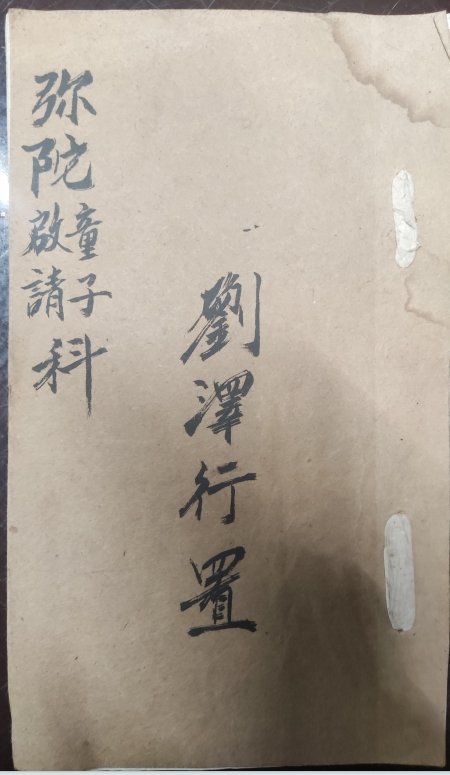 弥陀童子啟請科
劉澤行置